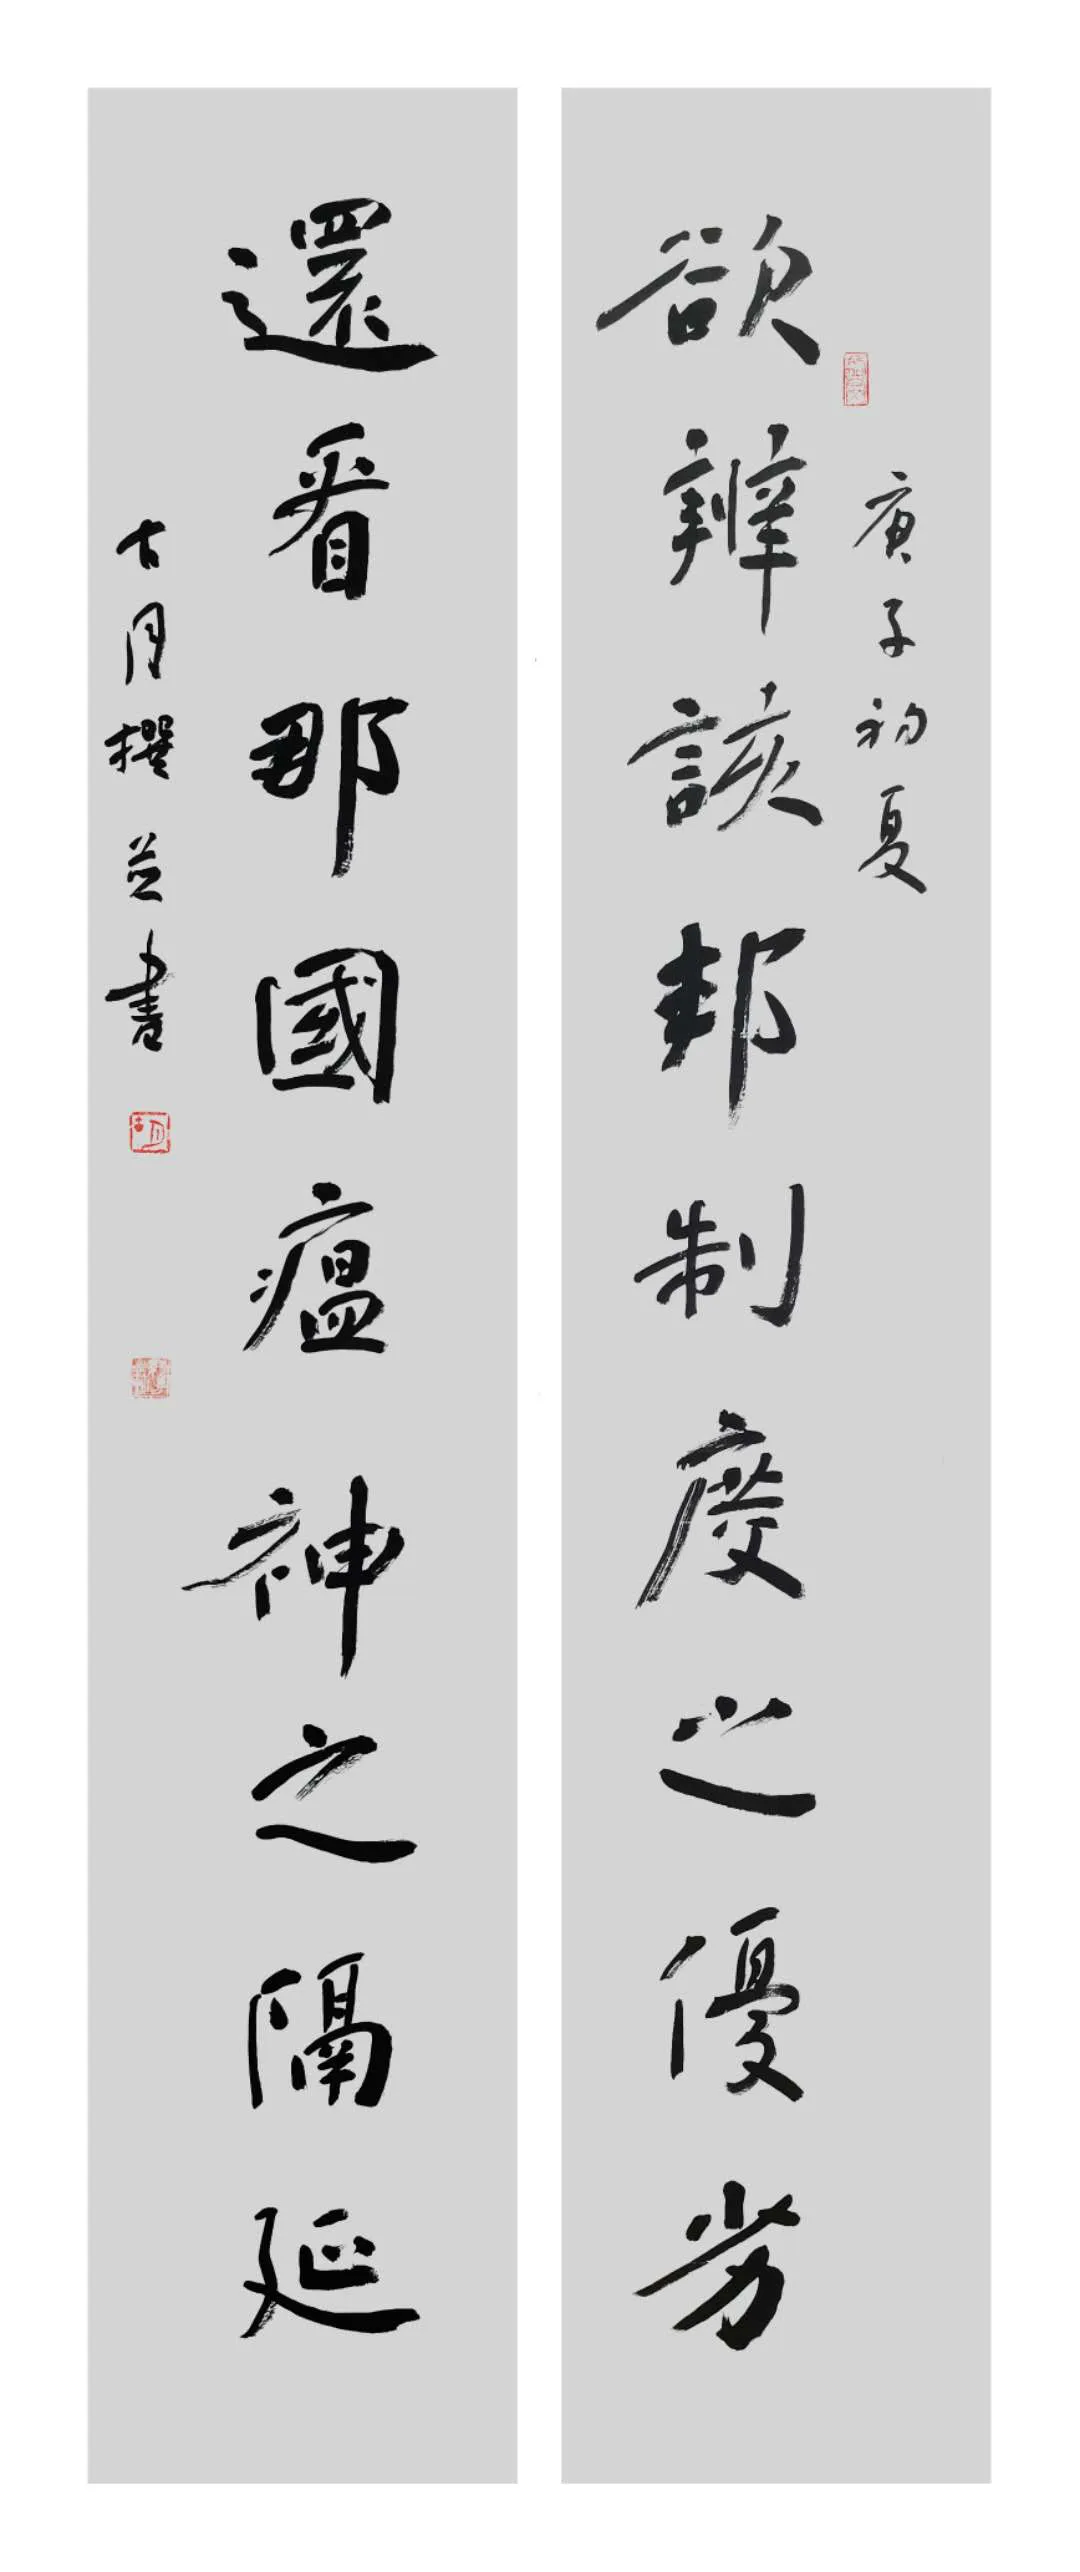 庚子初夏
欲辨該邦制度之優劣
還看那國瘟神之隔延
古月撰并書